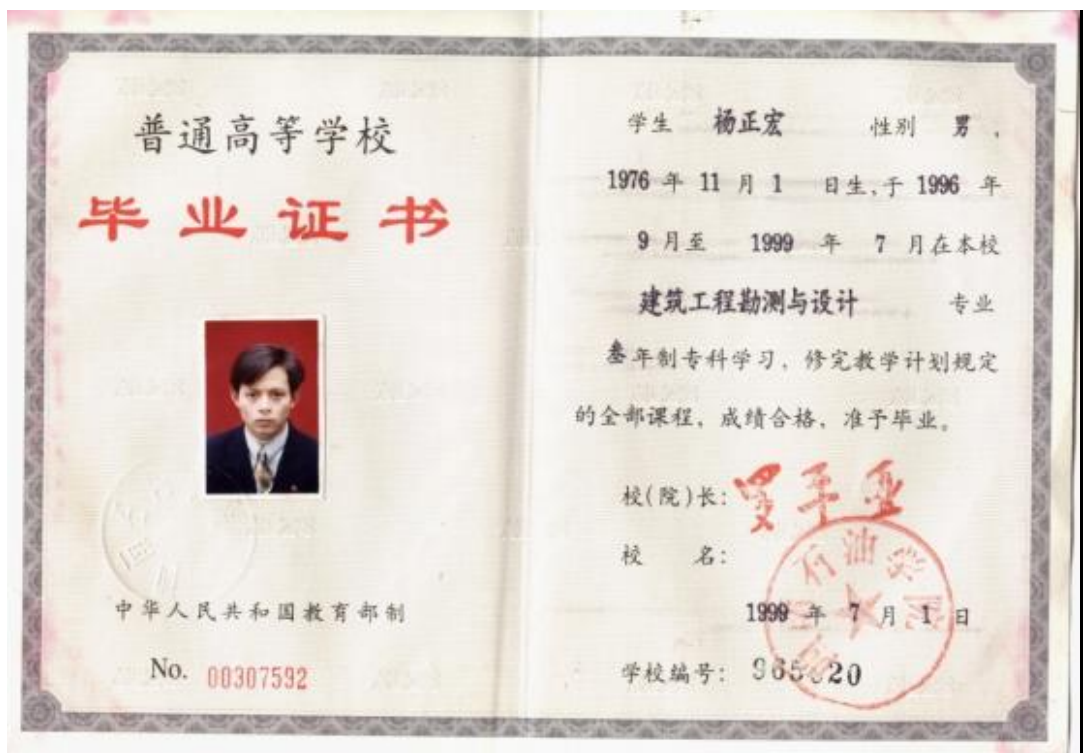 普通高等学校
毕业证书
中华人民共和国教育部制
No. 00307592
学生 杨正宏 性别 男，
1976 年 11 月 1 日生，于 1996 年
9 月至 1999 年 7 月在本校
建筑工程勘测与设计 专业
叁年制专科学习，修完教学计划规定
的全部课程，成绩合格，准予毕业。
校(院)长: 罗平亚
校 名:
石油学院
1999 年 7 月 1 日
学校编号: 965 20